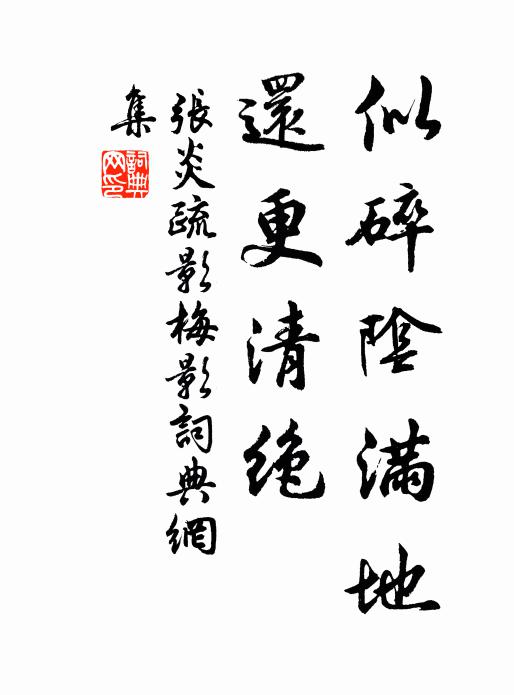 似碎陰滿地
還更清絕
張炎疏影梅影詞典網
集
詞典
网印